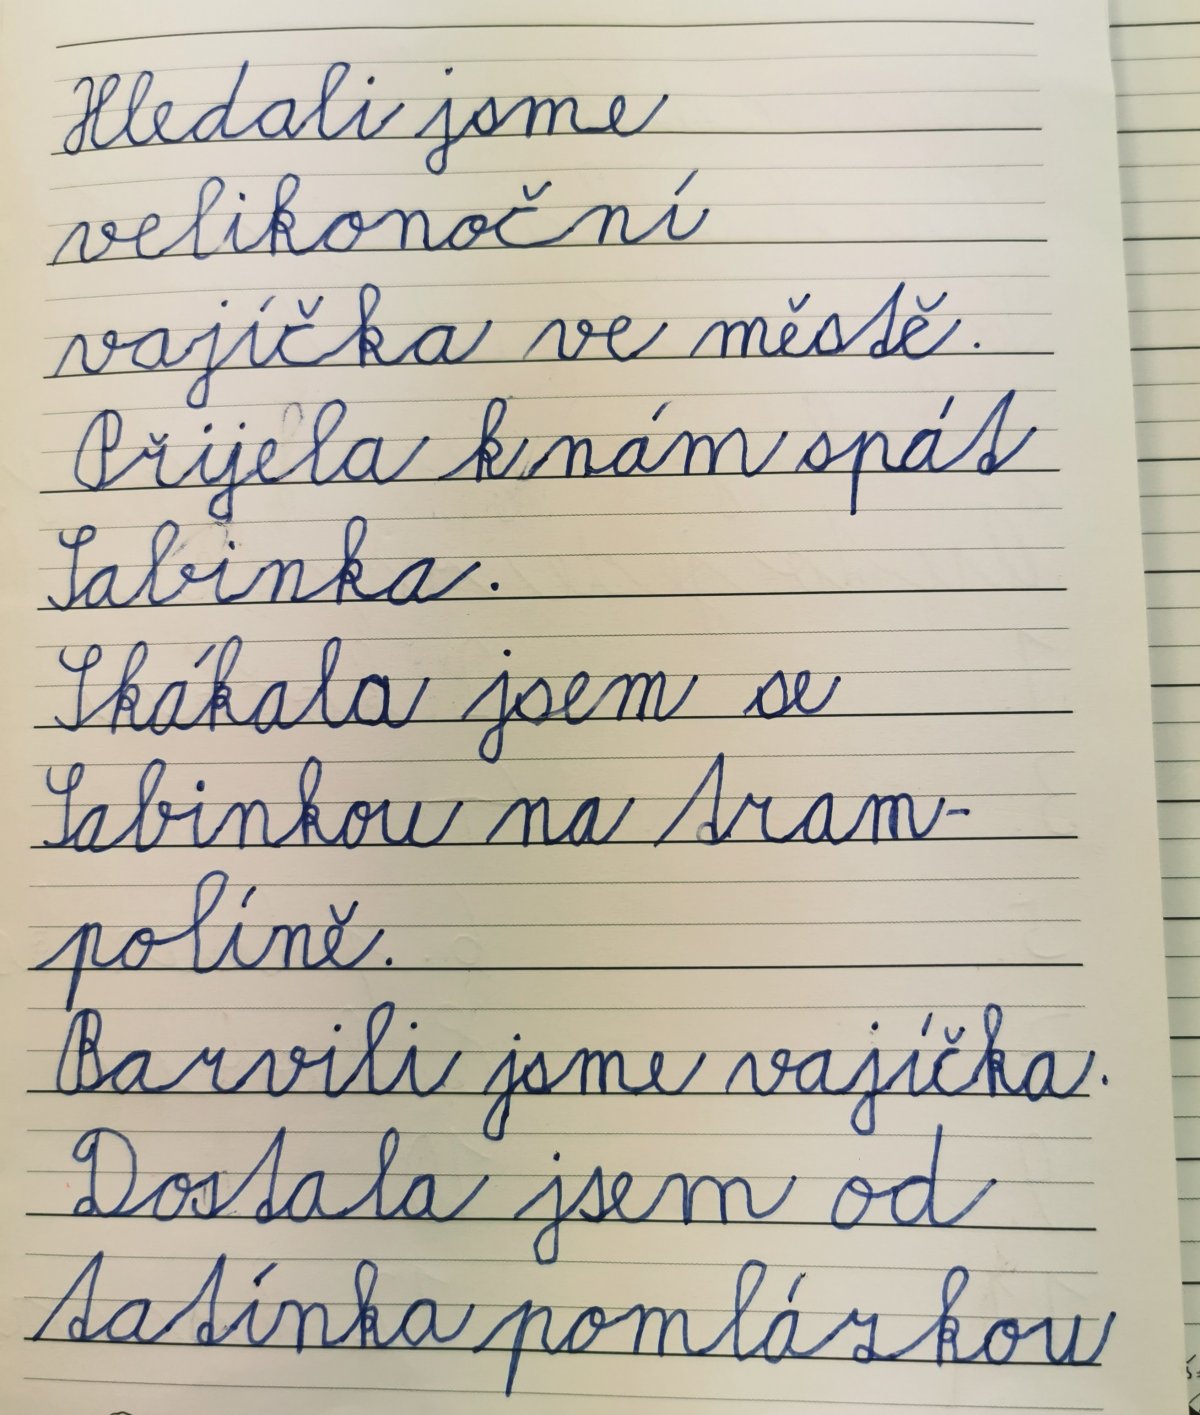 Hledali jsme
velikonoční
vajíčka ve městě.
Přijela k nám spát
Sabinka.
Skákala jsem se
Sabinkou na tram-
políně.
Barvili jsme vajíčka.
Dostala jsem od
tatínka pomlázkou